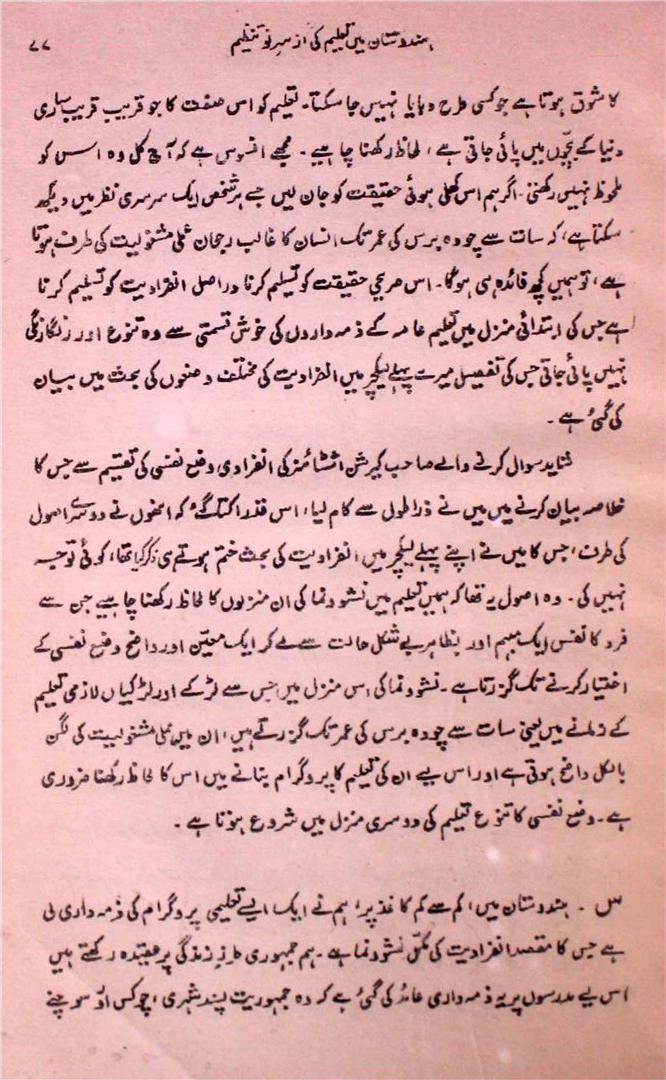 ہندوستان میں تعلیم کی از سرِ نو تنظیم ۷۷
کا شوق ہوتا ہے جو کسی طرح دبایا نہیں جا سکتا۔ تعلیم کو اس صفت کا جو قریب قریب ساری
دنیا کے بچّوں میں پائی جاتی ہے، لحاظ رکھنا چاہیے۔ مجھے افسوس ہے کہ آج کل وہ اس کو
ملحوظ نہیں رکھتی۔ اگر ہم اس کھلی ہوئی حقیقت کو جان لیں جسے ہر شخص ایک سرسری نظر میں دیکھ
سکتا ہے، کہ سات سے چودہ برس کی عمر تک انسان کا غالب رجحان عملی مشغولیت کی طرف ہوتا
ہے، تو ہمیں کچھ فائدہ ہی ہوگا۔ اس صریحی حقیقت کو تسلیم کرنا دراصل انفرادیت کو تسلیم کرنا
ہے جس کی ابتدائی منزل میں تعلیم عامہ کے ذمہ داروں کی خوش قسمتی سے وہ تنوع اور رنگارنگی
نہیں پائی جاتی جس کی تفصیل میرے پہلے لیکچر میں انفرادیت کی مختلف وضعوں کی بحث میں بیان
کی گئی ہے۔
شاید سوال کرنے والے صاحب کیرشن اشٹائنر کی انفرادی وضع نفسی کی تقسیم سے جس کا
خلاصہ بیان کرنے میں میں نے ذرا طول سے کام لیا، اس قدر اکتا گئے کہ انھوں نے دوسرے اصول
کی طرف، جس کا میں نے اپنے پہلے لیکچر میں انفرادیت کی بحث ختم ہوتے ہی ذکر کیا تھا، کوئی توجہ
نہیں کی۔ وہ اصول یہ تھا کہ ہمیں تعلیم میں نشو و نما کی ان منزلوں کا لحاظ رکھنا چاہیے جن سے
فرد کا نفس ایک مبہم اور بظاہر بے شکل حالت سے لے کر ایک معین اور واضح وضع نفسی کے
اختیار کرنے تک گزرتا ہے۔ نشو و نما کی اس منزل میں جس سے لڑکے اور لڑکیاں لازمی تعلیم
کے زمانے میں یعنی سات سے چودہ برس کی عمر تک گزرتے ہیں، ان میں عملی مشغولیت کی لگن
بالکل واضح ہوتی ہے اور اس لیے ان کی تعلیم کا پروگرام بنانے میں اس کا لحاظ رکھنا ضروری
ہے۔ وضع نفسی کا تنوع تعلیم کی دوسری منزل میں شروع ہوتا ہے۔
س ۔ ہندوستان میں، کم سے کم کاغذ پر، ہم نے ایک ایسے تعلیمی پروگرام کی ذمہ داری لی
ہے جس کا مقصد انفرادیت کی مکمل نشو و نما ہے۔ ہم جمہوری طرز زندگی پر عقیدہ رکھتے ہیں
اس لیے مدرسوں پر یہ ذمہ داری عائد کی گئی ہے کہ وہ جمہوریت پسند شہری، چوکس اور سوچنے